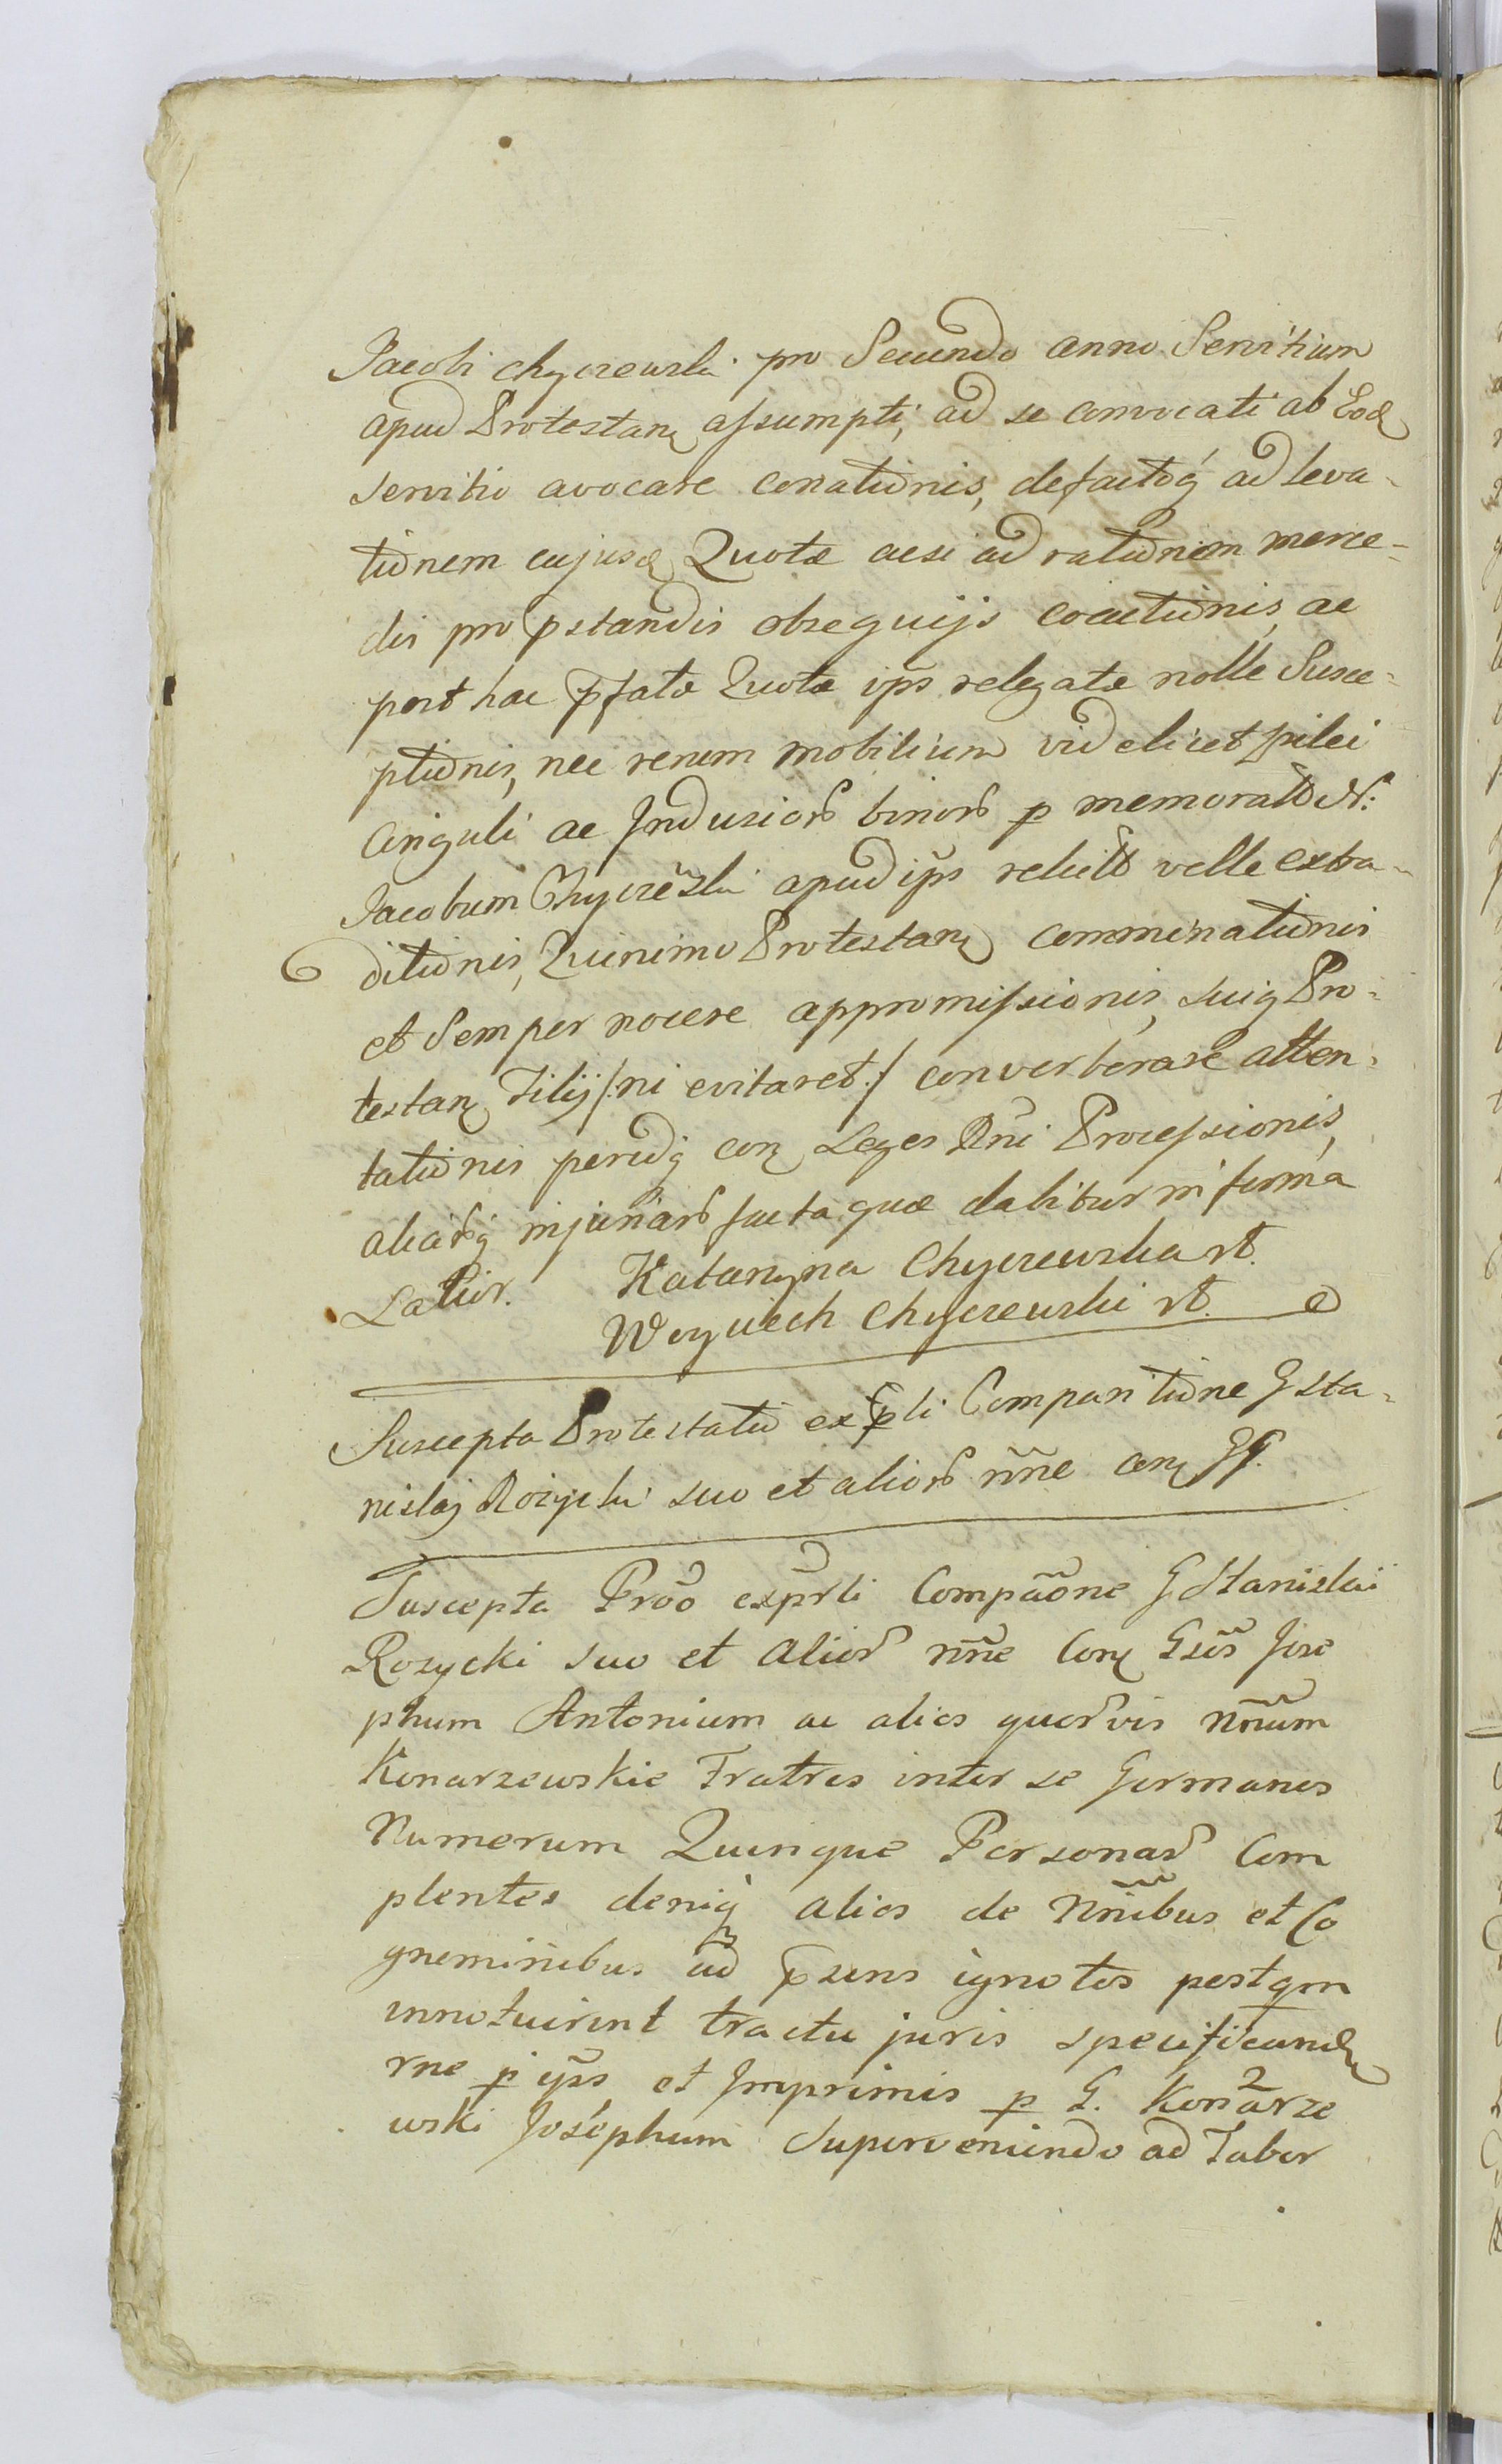 Jacobi Chyczewski pro Secundo anno Servitium
apud Protestan assumpti, ad se convocati ab Eod
servitio avocare conationis, defactoq ad leva-
tionem cujusd Quotæ aesi ad rationem merce-
dis pro pstandis obsequijs coactionis, ac
post hac pfatæ Quotæ ips relegatæ nolle Susce-
ptionis, nec rerum mobilium videlicet pilei
cinguli ac Indusior binor p memorat N:
Jacobum Chyczewski apud ips relict velle extra-
ditionis, Quinimo Protestan comminationis
et Semper nocere appromissionis, suiq Pro-
testan Filij /:ni evitaret:/ converberare atten-
tationis perидq con Leges Rni Processionis,
aliarq injuriar facta quæ dabitur in forma
Latior. Katarzyna Chyczewska rt.
Woyciech Chyczewski rt.
Suscepta Protestatio ex pli Comparitione G Sta-
nislaj Rozycki suo et alior nne con GG.
Suscepta Prõo exprli Compãone G Stanislai
Rozycki suo et Alior nne Con Gsos Jose
phum Antonium ac alios quorvis Nnium
Konarzewskie Fratres inter se Germanos
Numerum Quinque Personar Com
plentes deniq alios de Nnibus et Co
gnominibus ad psens ignotos postqm
innotuirint tractu juris specificand
rne p ips et Imprimis p G. Konarze
wski Josephum Superveniendo ad Taber